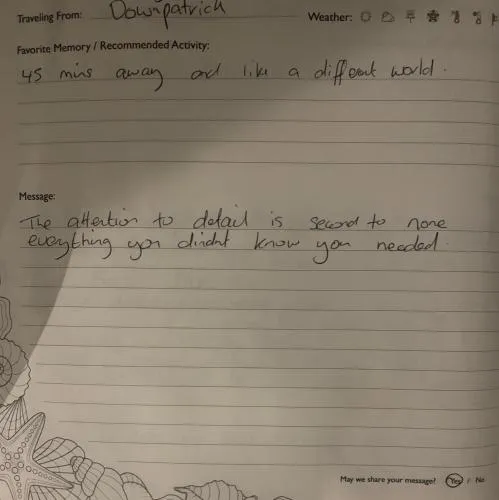 Traveling From: Downpatrick Weather:
Favorite Memory / Recommended Activity:
45 mins away and like a different world.
Message:
The attention to detail is second to none
everything you didnt know you needed.
May we share your message? Yes / No